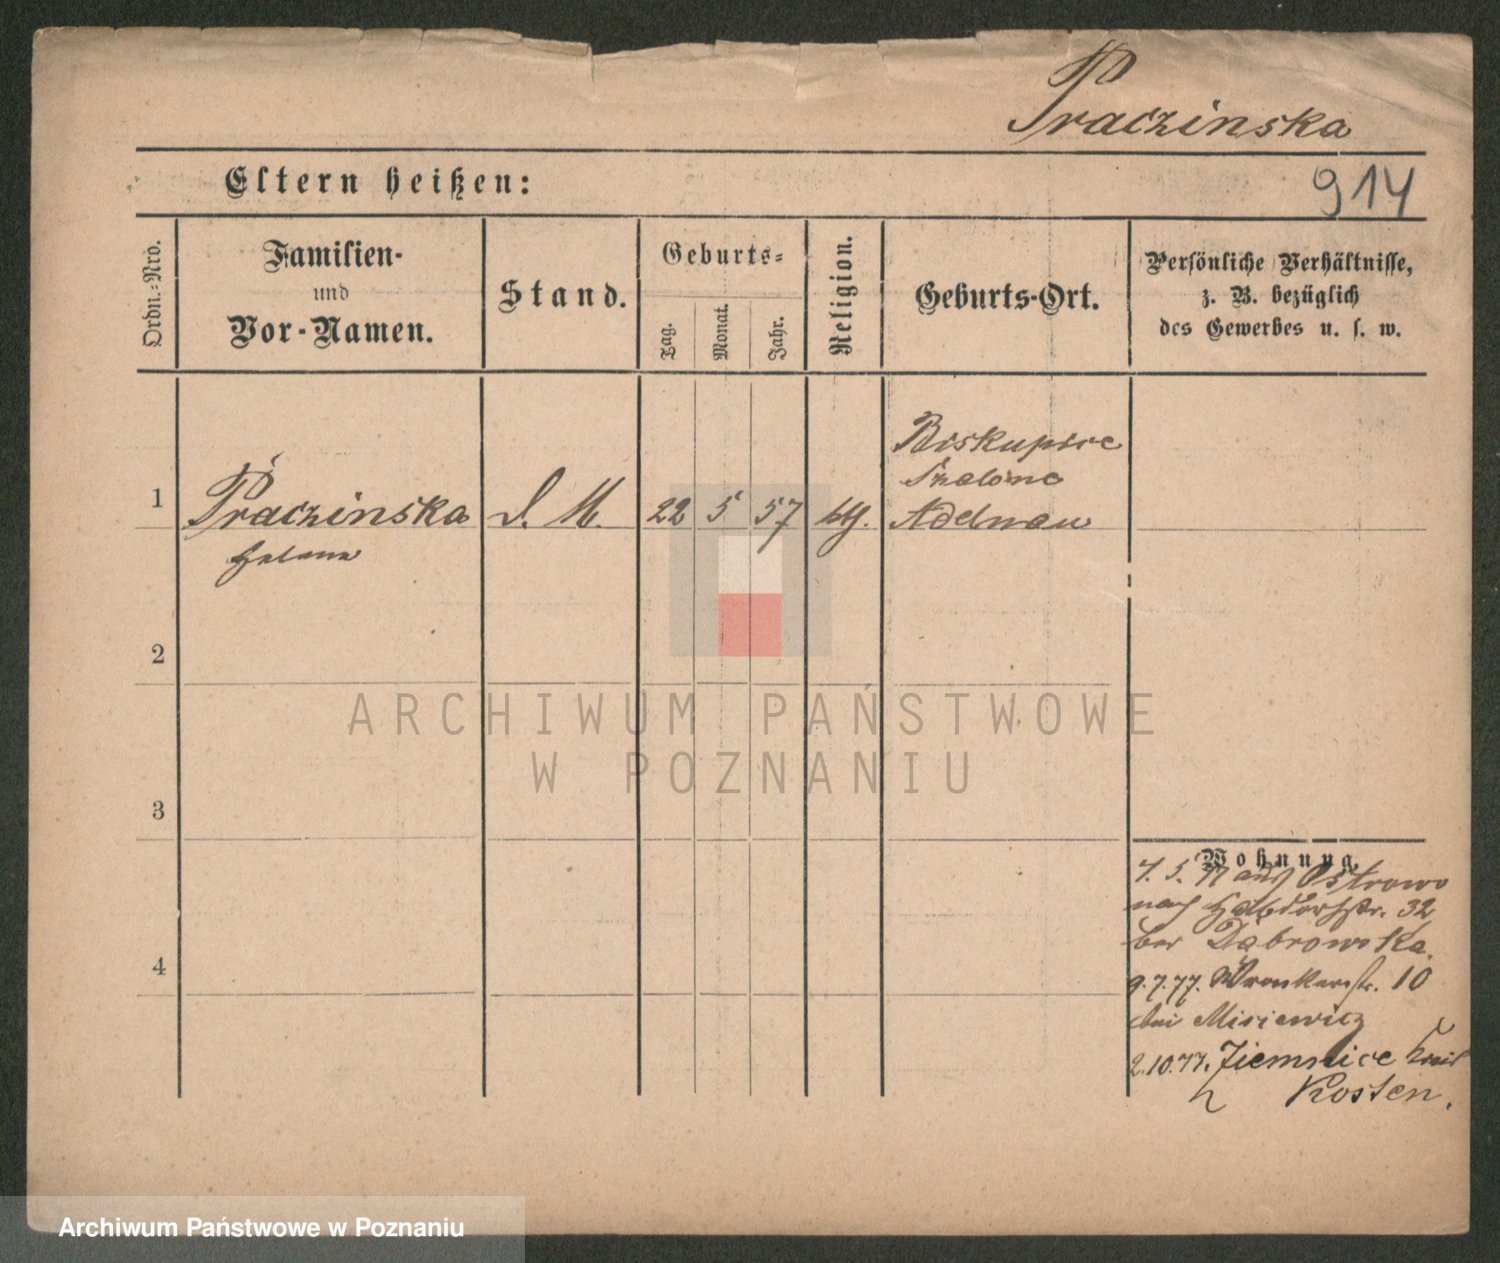 Praczinska
Eltern heißen:
914
Ordn.-Nro.
Familien-
und
Vor-Namen.
Stand.
Geburts-
Tag.
Monat.
Jahr.
Religion.
Geburts-Ort.
Persönliche Verhältnisse,
z. B. bezüglich
des Gewerbes u. s. w.
1
Praczinska
Helena
d. M.
22
5
57
kth.
Biskupice
Szalone
Adelnau
2
3
4
Wohnung.
7. 5. 77 aus Ostrowo
nach Halbdorfstr. 32
bei Dąbrowska.
9.7.77. Wronkerstr. 10
bei Misiewicz
2.10.77. Ziemnice Kreis
Kosten.
ARCHIWUM PAŃSTWOWE
W POZNANIU
Archiwum Państwowe w Poznaniu